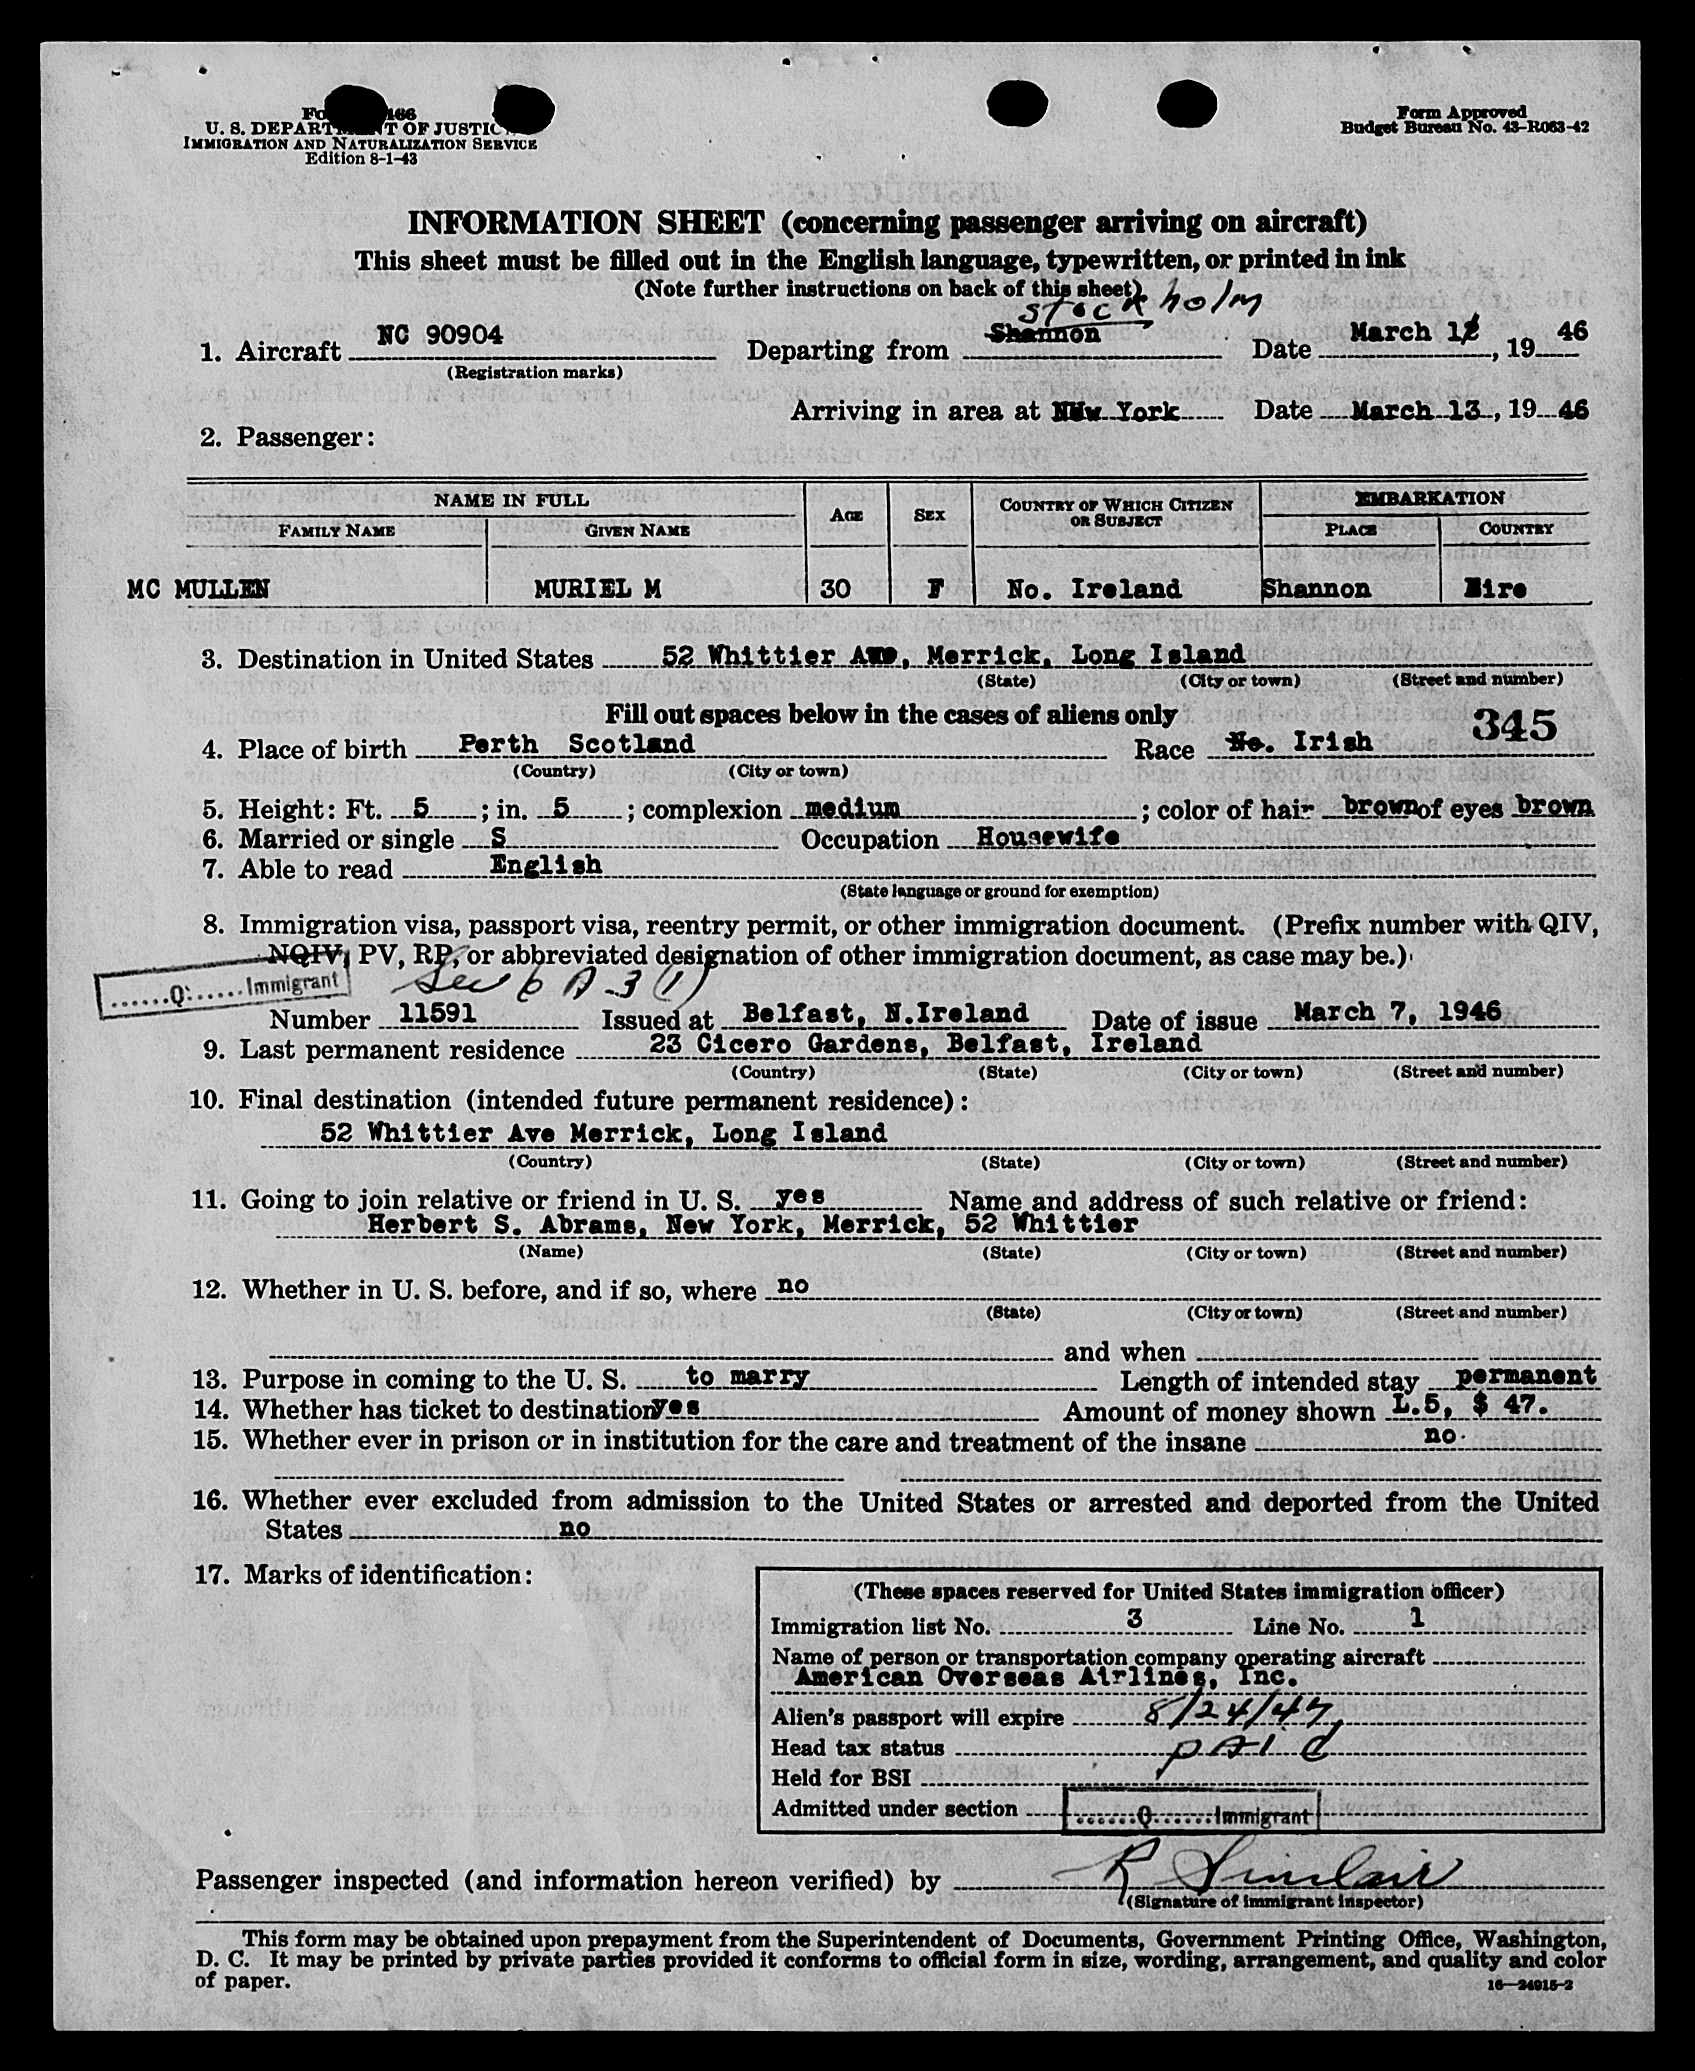 Fo 466
U. S. DEPARTMENT OF JUSTIC
IMMIGRATION AND NATURALIZATION SERVICE
Edition 8-1-43
Form Approved
Budget Bureau No. 43-R063-42
INFORMATION SHEET (concerning passenger arriving on aircraft)
This sheet must be filled out in the English language, typewritten, or printed in ink
(Note further instructions on back of this sheet)
stockholm
1. Aircraft NC 90904 Departing from Shannon Date March 12, 19 46
(Registration marks)
Arriving in area at New York Date March 13, 19 46
2. Passenger:
NAME IN FULL AGE SEX COUNTRY OF WHICH CITIZEN OR SUBJECT EMBARKATION
FAMILY NAME GIVEN NAME PLACE COUNTRY
MC MULLEN MURIEL M 30 F No. Ireland Shannon Eire
3. Destination in United States 52 Whittier Ave, Merrick, Long Island
(State) (City or town) (Street and number)
Fill out spaces below in the cases of aliens only 345
4. Place of birth Perth Scotland Race No. Irish
(Country) (City or town)
5. Height: Ft. 5 ; in. 5 ; complexion medium ; color of hair brown of eyes brown
6. Married or single S Occupation Housewife
7. Able to read English
(State language or ground for exemption)
8. Immigration visa, passport visa, reentry permit, or other immigration document. (Prefix number with QIV,
NQIV, PV, RP, or abbreviated designation of other immigration document, as case may be.)
Q Immigrant Sec 6 A-3 (1)
Number 11591 Issued at Belfast, N.Ireland Date of issue March 7, 1946
9. Last permanent residence 23 Cicero Gardens, Belfast, Ireland
(Country) (State) (City or town) (Street and number)
10. Final destination (intended future permanent residence):
52 Whittier Ave Merrick, Long Island
(Country) (State) (City or town) (Street and number)
11. Going to join relative or friend in U. S. yes Name and address of such relative or friend:
Herbert S. Abrams, New York, Merrick, 52 Whittier
(Name) (State) (City or town) (Street and number)
12. Whether in U. S. before, and if so, where no
(State) (City or town) (Street and number)
and when
13. Purpose in coming to the U. S. to marry Length of intended stay permanent
14. Whether has ticket to destination yes Amount of money shown L.5, $ 47.
15. Whether ever in prison or in institution for the care and treatment of the insane no
16. Whether ever excluded from admission to the United States or arrested and deported from the United
States no
17. Marks of identification:
(These spaces reserved for United States immigration officer)
Immigration list No. 3 Line No. 1
Name of person or transportation company operating aircraft
American Overseas Airlines, Inc.
Alien's passport will expire 8/24/47
Head tax status PAID
Held for BSI
Admitted under section Q Immigrant
Passenger inspected (and information hereon verified) by R Sinclair
(Signature of immigrant inspector)
This form may be obtained upon prepayment from the Superintendent of Documents, Government Printing Office, Washington,
D. C. It may be printed by private parties provided it conforms to official form in size, wording, arrangement, and quality and color
of paper.
16—24915-2